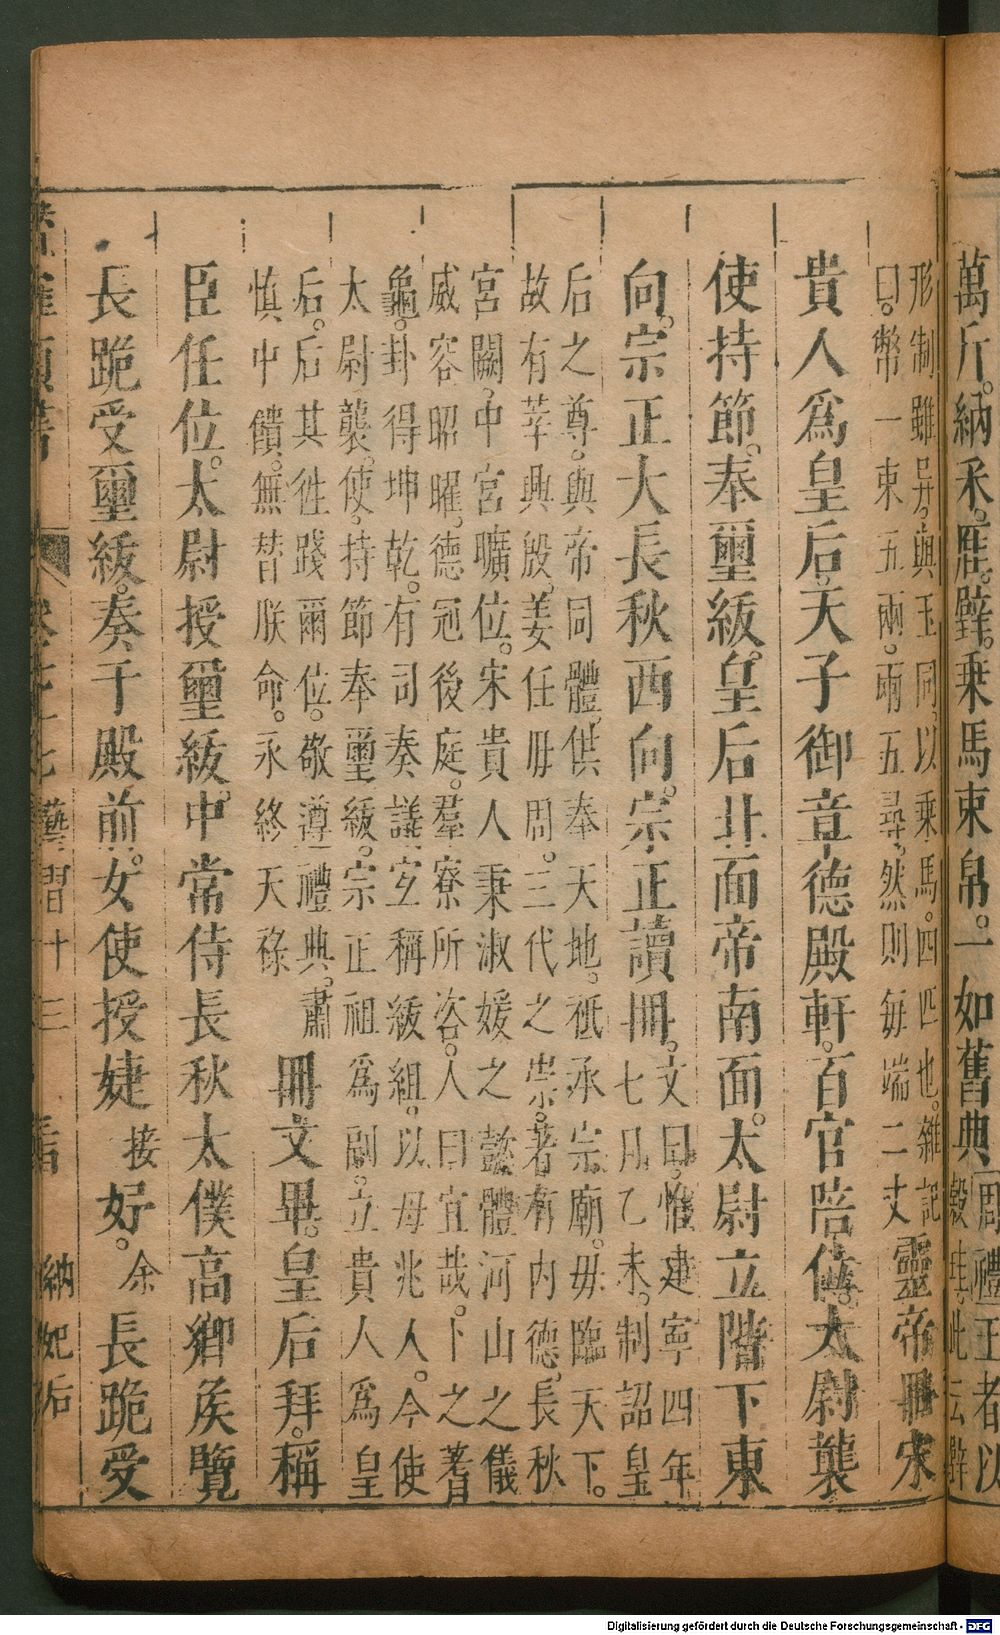 萬斤。納采。鴈。璧。乗馬束帛。一如舊典
周禮王者以
穀圭。此云璧
形制雖异。與玉同。以乗馬。四匹也。雜記
曰。幣一束。束五兩。兩五尋。然則每端二丈
靈帝冊宋
貴人爲皇后。天子御章德殿軒。百官陪位。太尉襲
使持節。奉璽綬。皇后北面。帝南面。太尉立階下東
向。宗正大長秋西向。宗正讀冊。
文曰。惟建寧四年
七月乙未。制詔皇
后之尊。與帝同體。供奉天地。祗承宗廟。毋臨天下。
故有莘興殷。姜任毋周。二代之崇。著有内德。長秋
宮闕。中宮曠位。宋貴人秉淑媛之懿體河山之儀
威容昭曜。德冠後庭。羣寮所咨。人曰宜哉。卜之蓍
龜。卦得坤乾。有司奏議。宜稱紱組。以母兆人。今使
太尉襲。使持節奉璽綬。宗正祖爲副。立貴人爲皇
后。后其徃踐爾位。敬遵禮典。肅
慎中饋。無替朕命。永終天祿
冊文畢。皇后拜。稱
臣任位。太尉授璽綬。中常侍長秋太僕高鄉矦覽
長跪受璽綬。奏于殿前。女使授婕
接
好。
余
長跪受
卷之七 藝習十三 后 納妃后
Digitalisierung gefördert durch die Deutsche Forschungsgemeinschaft - DFG